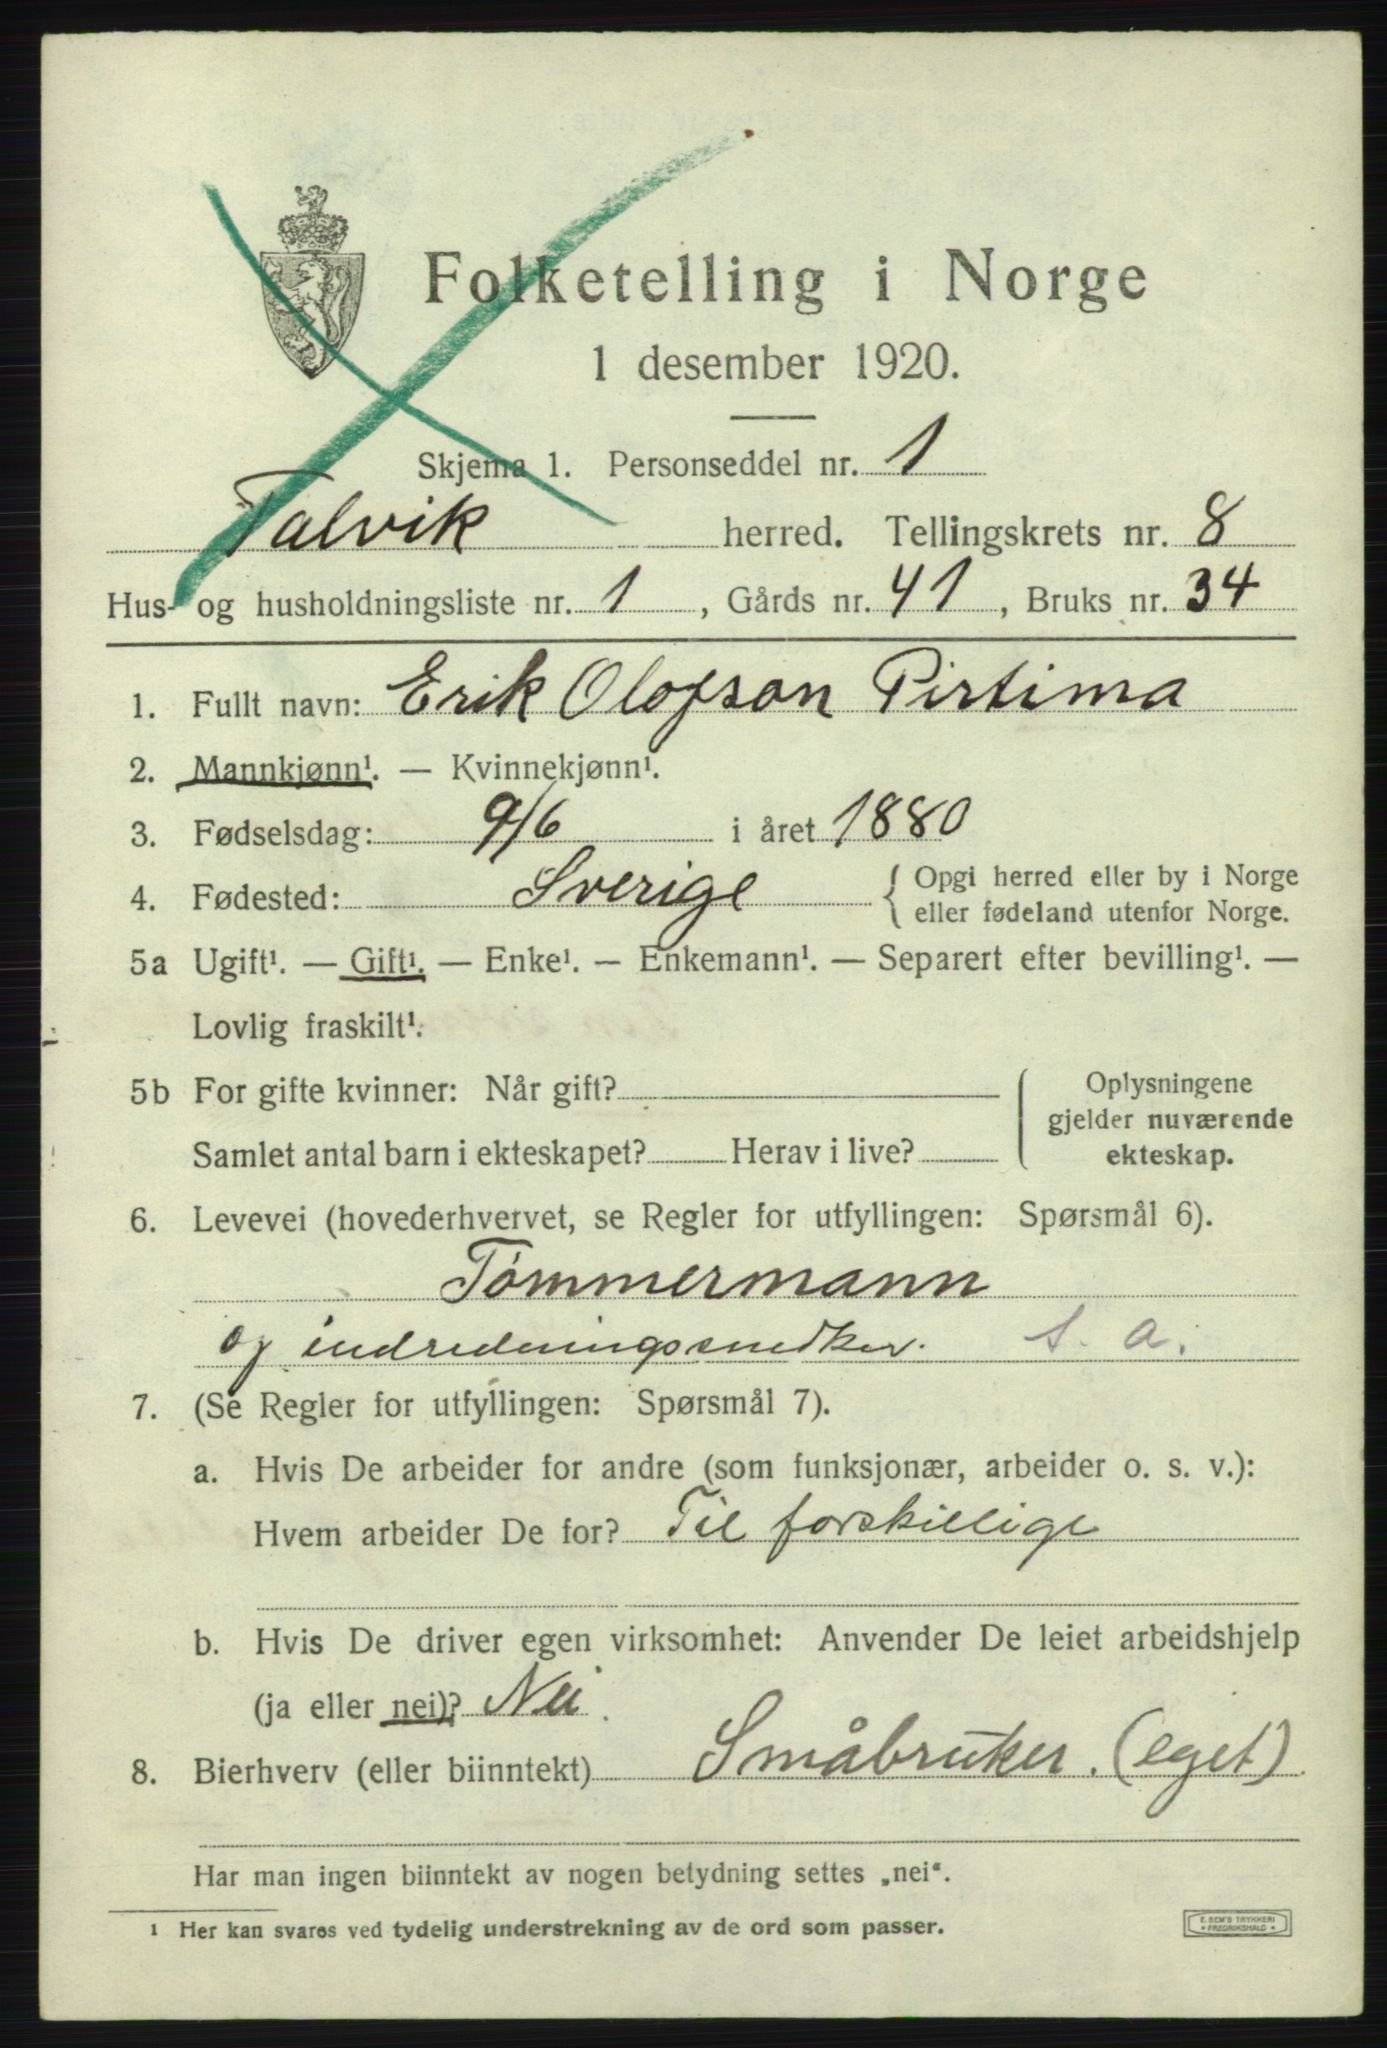 Folketelling i Norge
1 desember 1920.
Skjema 1. Personseddel nr. 1
Talvik herred. Tellingskrets nr. 8
Hus- og husholdningsliste nr. 1, Gårds nr. 41, Bruks nr. 34
1. Fullt navn: Erik Olofson Pirtima
2. Mannkjønn¹. — Kvinnekjønn¹.
3. Fødselsdag: 9/6 i året 1880
4. Fødested: Sverige { Opgi herred eller by i Norge
eller fødeland utenfor Norge.
5a Ugift¹. — Gift¹. — Enke¹. — Enkemann¹. — Separert efter bevilling¹. —
Lovlig fraskilt¹.
5b For gifte kvinner: Når gift?
Samlet antal barn i ekteskapet? Herav i live?
Oplysningene
gjelder nuværende
ekteskap.
6. Levevei (hovederhvervet, se Regler for utfyllingen: Spørsmål 6).
Tømmermann
og indredningssnedker. s. a.
7. (Se Regler for utfyllingen: Spørsmål 7).
a. Hvis De arbeider for andre (som funksjonær, arbeider o. s. v.):
Hvem arbeider De for? Til forskillige
b. Hvis De driver egen virksomhet: Anvender De leiet arbeidshjelp
(ja eller nei)? Nei.
8. Bierhverv (eller biinntekt) Småbruker. (eget)
Har man ingen biinntekt av nogen betydning settes „nei“.
¹ Her kan svares ved tydelig understrekning av de ord som passer.
E. SEM'S TRYKKERI
• FREDRIKSHALD •